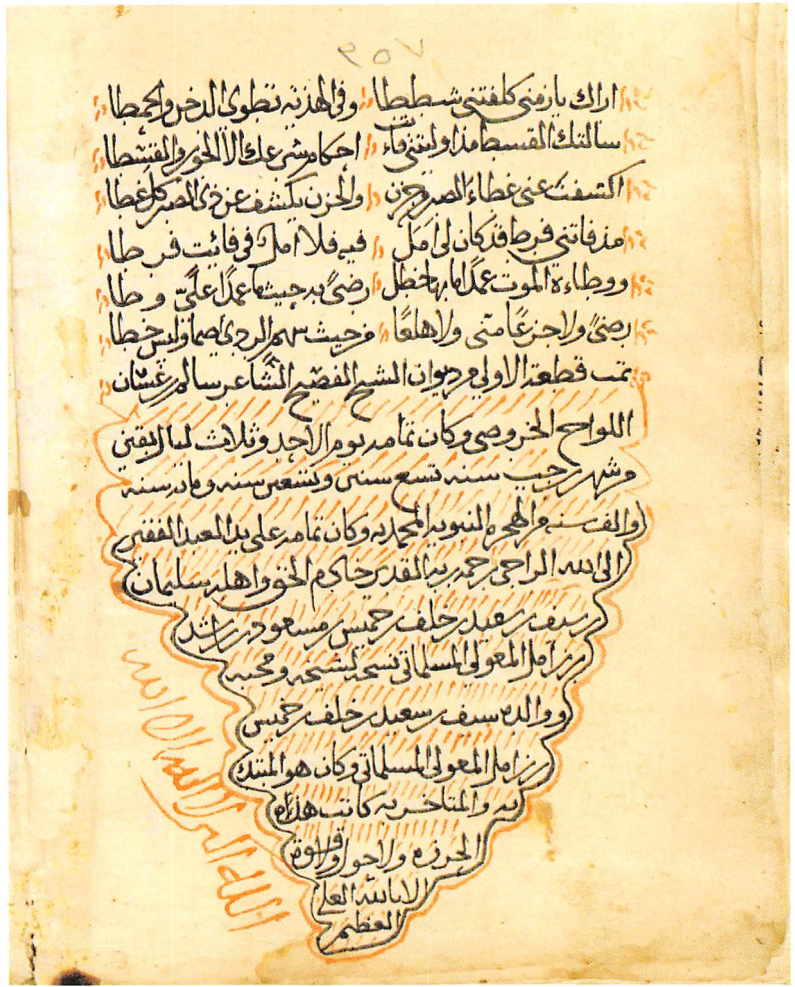 ٩٥٧
اراك يا زمني كلفتني شططا وفي الهذنه تطوي الدخن والحمطا
سالتك القسط مذ اوليتني فات احكام شرعك الا الجور والقسطا
اكشفت عني غطاء الصبر وحزن والحزن يكشف عن ذي الصبر كل غطا
مذ فاتني فرط قد كان لي امل فيه فلا امل في فائت فرطا
ووطاءة الموت عمدا رضى به حيث ما عمدا علي وطا
رضى ولا جزعا مني ولا هلعا من حيث سهم الردى اصما وليس خطا
تمت قطعة الاولي من ديوان الشيخ الفصيح الشاعر سالم بن غسان
اللواح الخروصي وكان تمامه يوم الاحد وثلاث ليال بقين
من شهر رجب سنه تسع سنين وتسعين سنه ومائة سنة
والف سنه من الهجرة النبويه المحمديه وكان تمامه على يد العبد الفقير
الى الله الراجي رحمة ربه القدير خادم الحق واهله سليمان
بن سيف بن سعيد بن خلف بن خميس بن مسعود بن راشد
بن زامل المعولي المسلماتي نسخه لشيخه ومحبه
ووالده سيف بن سعيد بن خلف بن خميس
بن زامل المعولي المسلماتي وكان هو المبتدئ
به والمتاخر به كاتب هذه
الحروف ولا حول ولا قوة
الا بالله العلي
العظيم